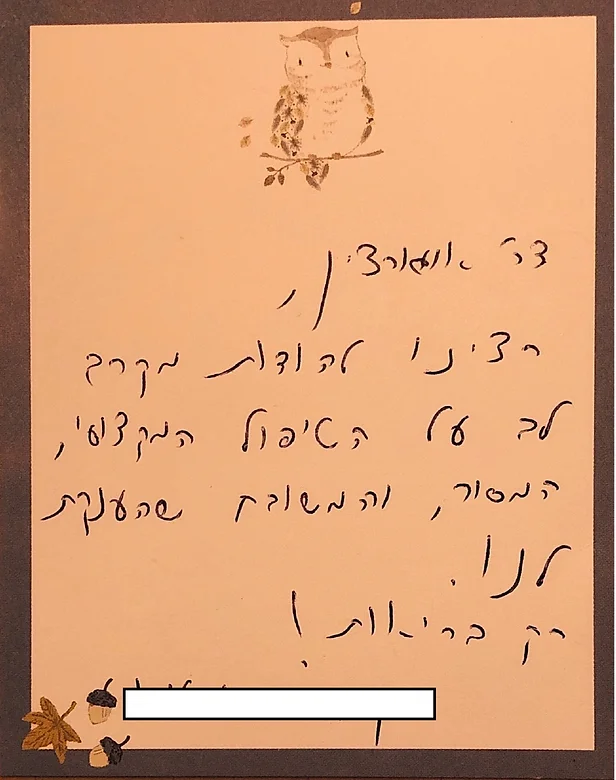 דר׳
רצינו להודות מקרב
לב על הטיפול המקצועי,
המסור, והמשובח שהענקת
לנו.
רק בריאות!